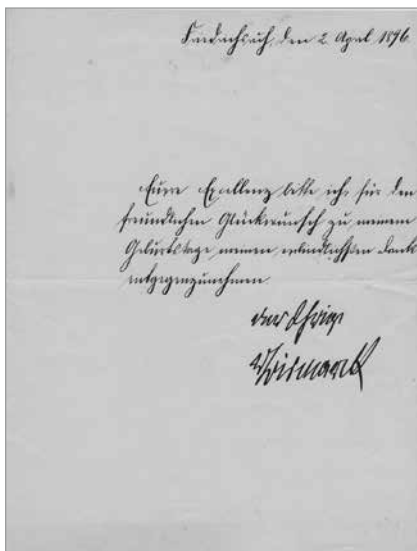 Friedrichsruh, den 2. April 1896.
Euere Excellenz bitte ich, für den
freundlichen Glückwunsch zu meinem
Geburtstage meinen verbindlichsten Dank
entgegenzunehmen.
der Ihrige
vBismarck